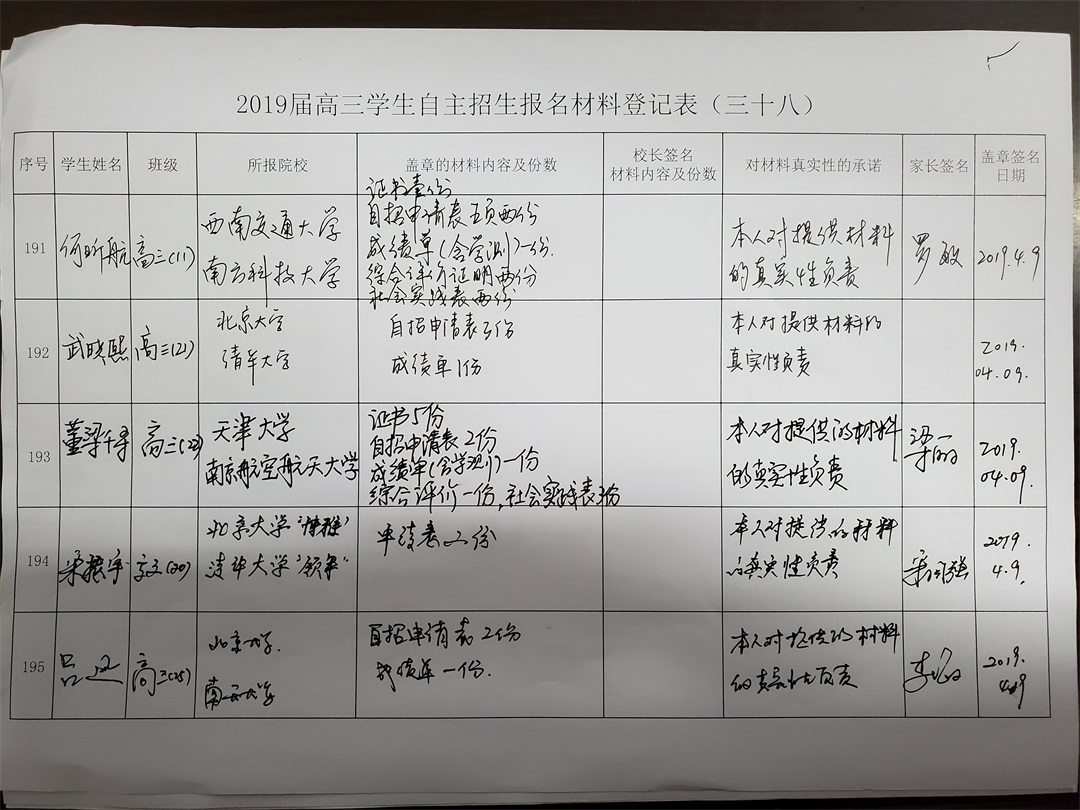 2019届高三学生自主招生报名材料登记表（三十八）
序号 学生姓名 班级 所报院校 盖章的材料内容及份数 校长签名 材料内容及份数 对材料真实性的承诺 家长签名 盖章签名 日期
191 何昕航 高三(11)
西南交通大学
南方科技大学
证书壹份
自招申请表五页两份
成绩单(含学测)一份.
综合评价证明两份
社会实践表两份
本人对提供材料
的真实性负责
罗敏 2019.4.9
192 武晓熙 高三(21)
北京大学
清华大学
自招申请表3份
成绩单1份
本人对提供材料的
真实性负责
2019.
04.09.
193 董梁千寻 高三(22)
天津大学
南京航空航天大学
证书5份
自招申请表2份
成绩单(含学测)一份
综合评价一份,社会实践表3份
本人对提供的材料
的真实性负责
梁丽
2019.
04.09.
194 宋振宇 (20)
北京大学"博雅"
清华大学"领军"
申请表二份
本人对提供的材料
的真实性负责
宋 强
2019.
4.9.
195 吕 高三(25)
北京大学.
南 大学
自招申请表2份
成绩单一份.
本人对提供的材料
的真实性负责
李
2019.
4.9